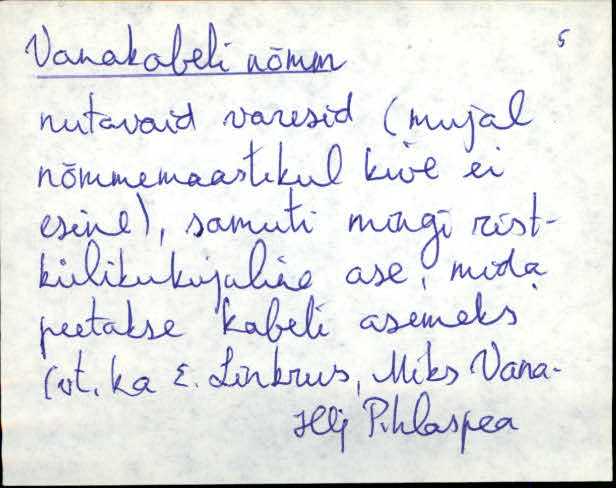 5
Vanakabeli nõmm
nutavaid varesid (mujal
nõmmemaastikul kive ei
esine), samuti mingi rist-
külikukujaline ase, mida
peetakse kabeli asemeks
(vt. ka E. Linkrus, Miks Vana-
Pihlaspea